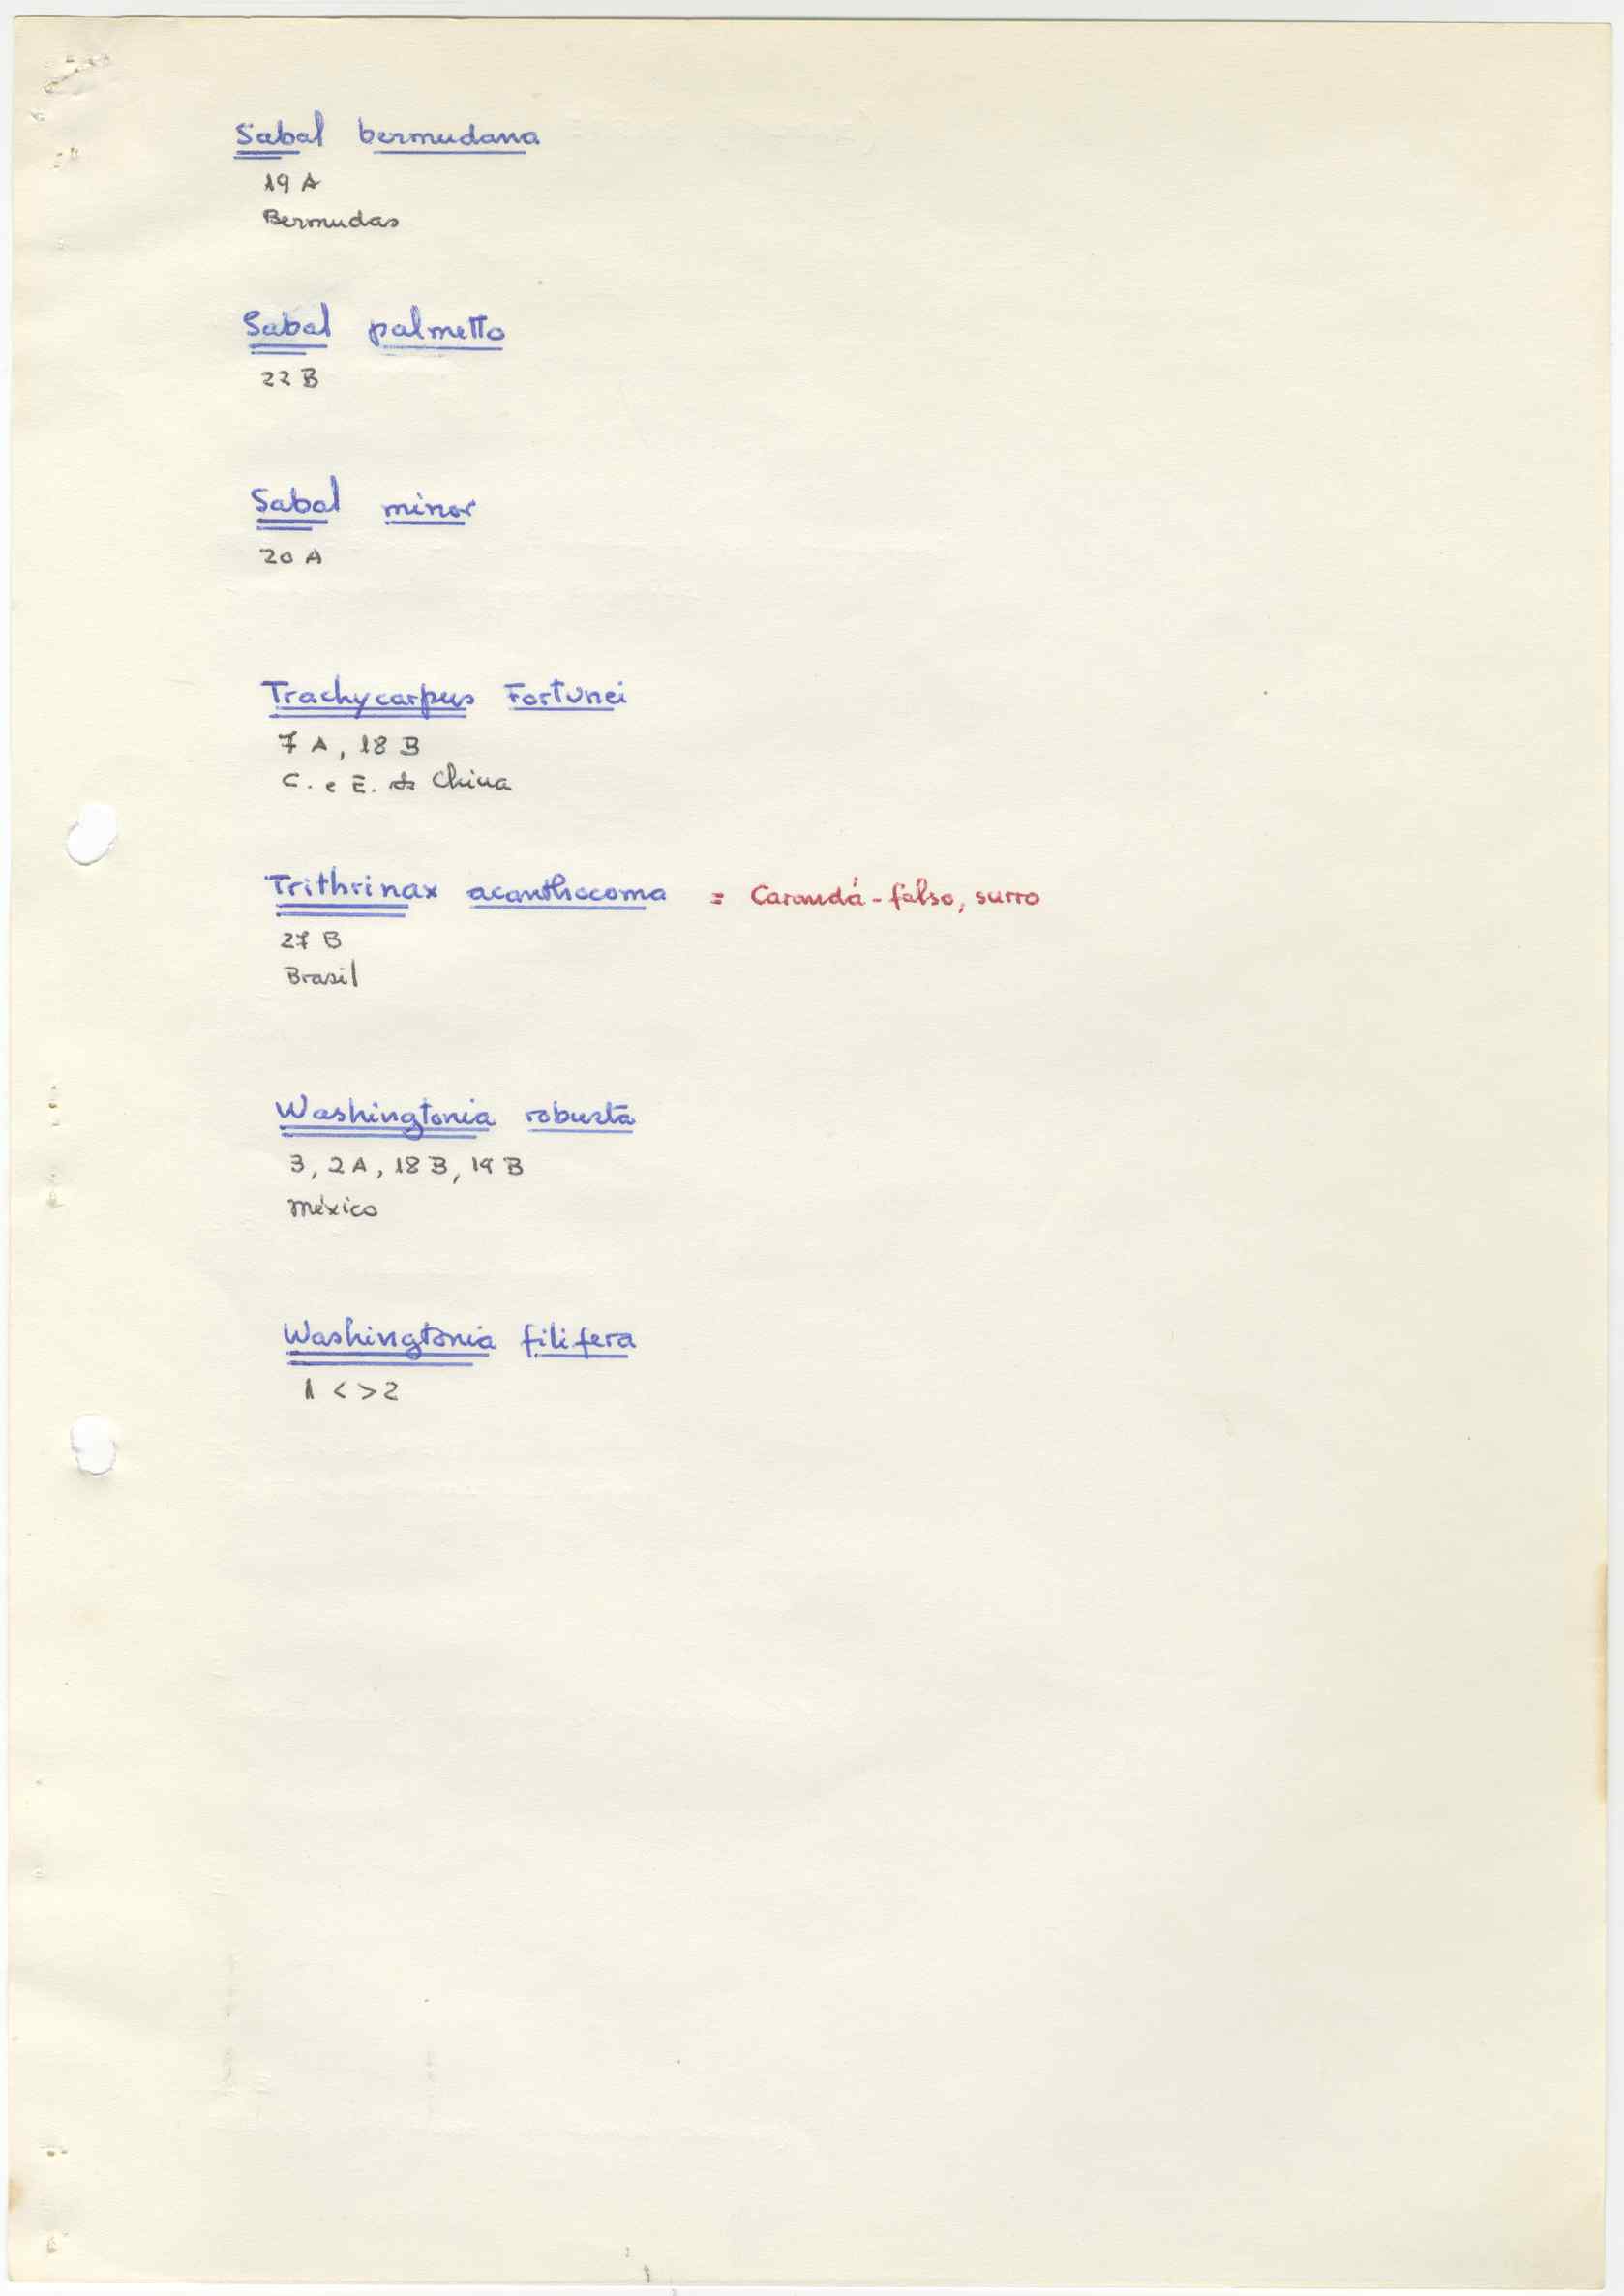 Sabal bermudana
19 A
Bermudas
Sabal palmetto
22 B
Sabal minor
20 A
Trachycarpus Fortunei
7 A, 18 B
C. e E. da China
Trithrinax acanthocoma = Carandá-falso, surro
27 B
Brasil
Washingtonia robusta
3, 2 A, 18 B, 19 B
México
Washingtonia filifera
1 < > 2